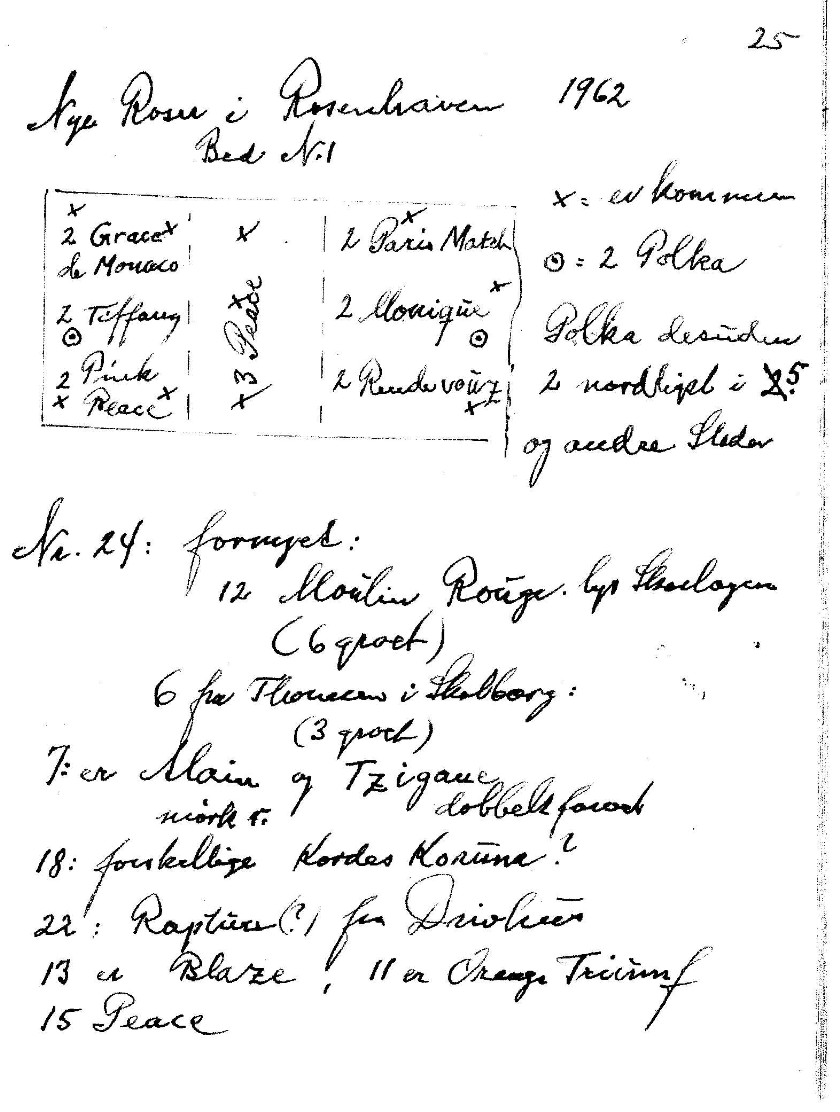 25
Nye Roser i Rosenhaven 1962
Bed N.1
x = er kommen
⊙ = 2 Polka
Polka desuden
2 nordligst i 5
og andre Steder
x
2 Grace x
de Monaco
2 Tiffany
⊙
2 Pink
x Peace x
x
x
3 Peace
x
x
2 Paris Match
x
2 Monique
⊙
2 Rendevouz
x
Nr. 24: fornyet:
12 Moulin Rouge. lys
(6 groet)
6 fra Thomsen i Skolborg:
(3 groet)
7: er Alain og Tzigane
mørk r. dobbelt farvet
18: forskellige Kordes Koruna?
22: Rapture(?) fra
13 er Blaze, 11 er Orange Triumf
15 Peace